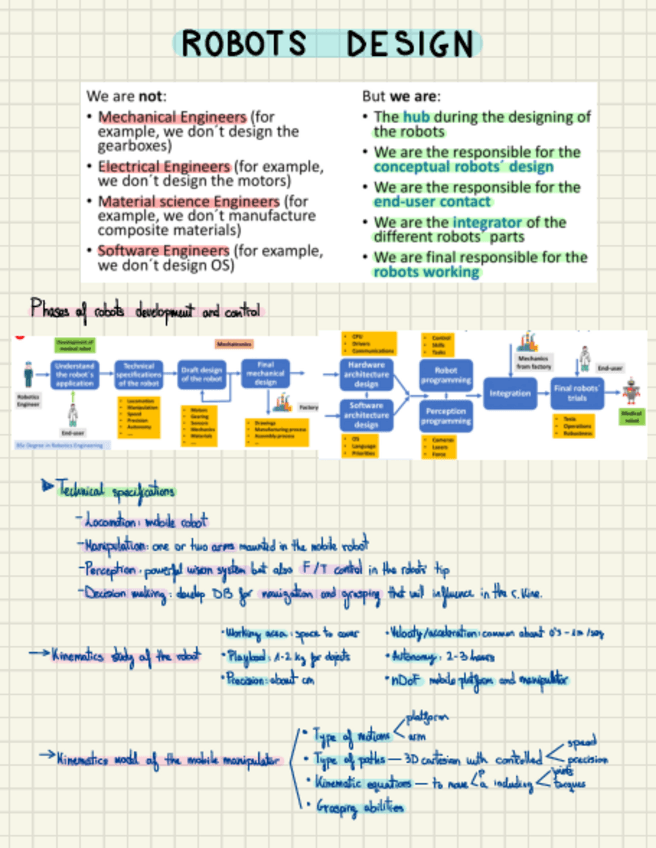 ROBOTS DESIGN
We are not:
• Mechanical Engineers (for
example, we don´t design the
gearboxes)
• Electrical Engineers (for example,
we don´t design the motors)
• Material science Engineers (for
example, we don´t manufacture
composite materials)
• Software Engineers (for example,
we don´t design OS)
But we are:
• The hub during the designing of
the robots
• We are the responsible for the
conceptual robots´ design
• We are the responsible for the
end-user contact
• We are the integrator of the
different robots´ parts
• We are final responsible for the
robots working
Phases of robots development and control
Development of
medical robot
Robotics
Engineer
Understand
the robot's
application
End-user
Technical
specifications
of the robot
• Locomotion
• Manipulation
• Speed
• Precision
• Autonomy
• ...
Draft design
of the robot
• Motors
• Gearing
• Sensors
• Mechanics
• Materials
• ...
Mechatronics
Final
mechanical
design
Factory
• Drawings
• Manufacturing process
• Assembly process
• ...
BSc Degree in Robotics Engineering
• CPU
• Drivers
• Communications
Hardware
architecture
design
Software
architecture
design
• OS
• Language
• Priorities
• Control
• Skills
• Tasks
Robot
programming
Perception
programming
• Cameras
• Lasers
• Force
Mechanics
from factory
Integration
End-user
Final robots´
trials
• Tests
• Operations
• Robustness
Medical
robot
Technical specifications
- Locomotion: mobile robot
- Manipulation: one or two arms mounted in the mobile robot
- Perception: powerful vision system but also F/T control in the robots' tip
- Decision making: develop DB for navigation and grasping that will influence in the c. kine.
→ Kinematics study of the robot
• Working area: space to cover
• Playload: 1-2 kg for objects
• Precision: about cm
• Velocity/acceleration: common about 0'5-1m/seg
• Autonomy: 2-3 hours
• nDoF mobile platform and manipulator
→ Kinematics model of the mobile manipulator
• Type of motions < platform
arm
• Type of paths — 3D cartesian with controlled < speed
precision
• Kinematic equations — to move < p
a including < joints
torques
• Grasping abilities